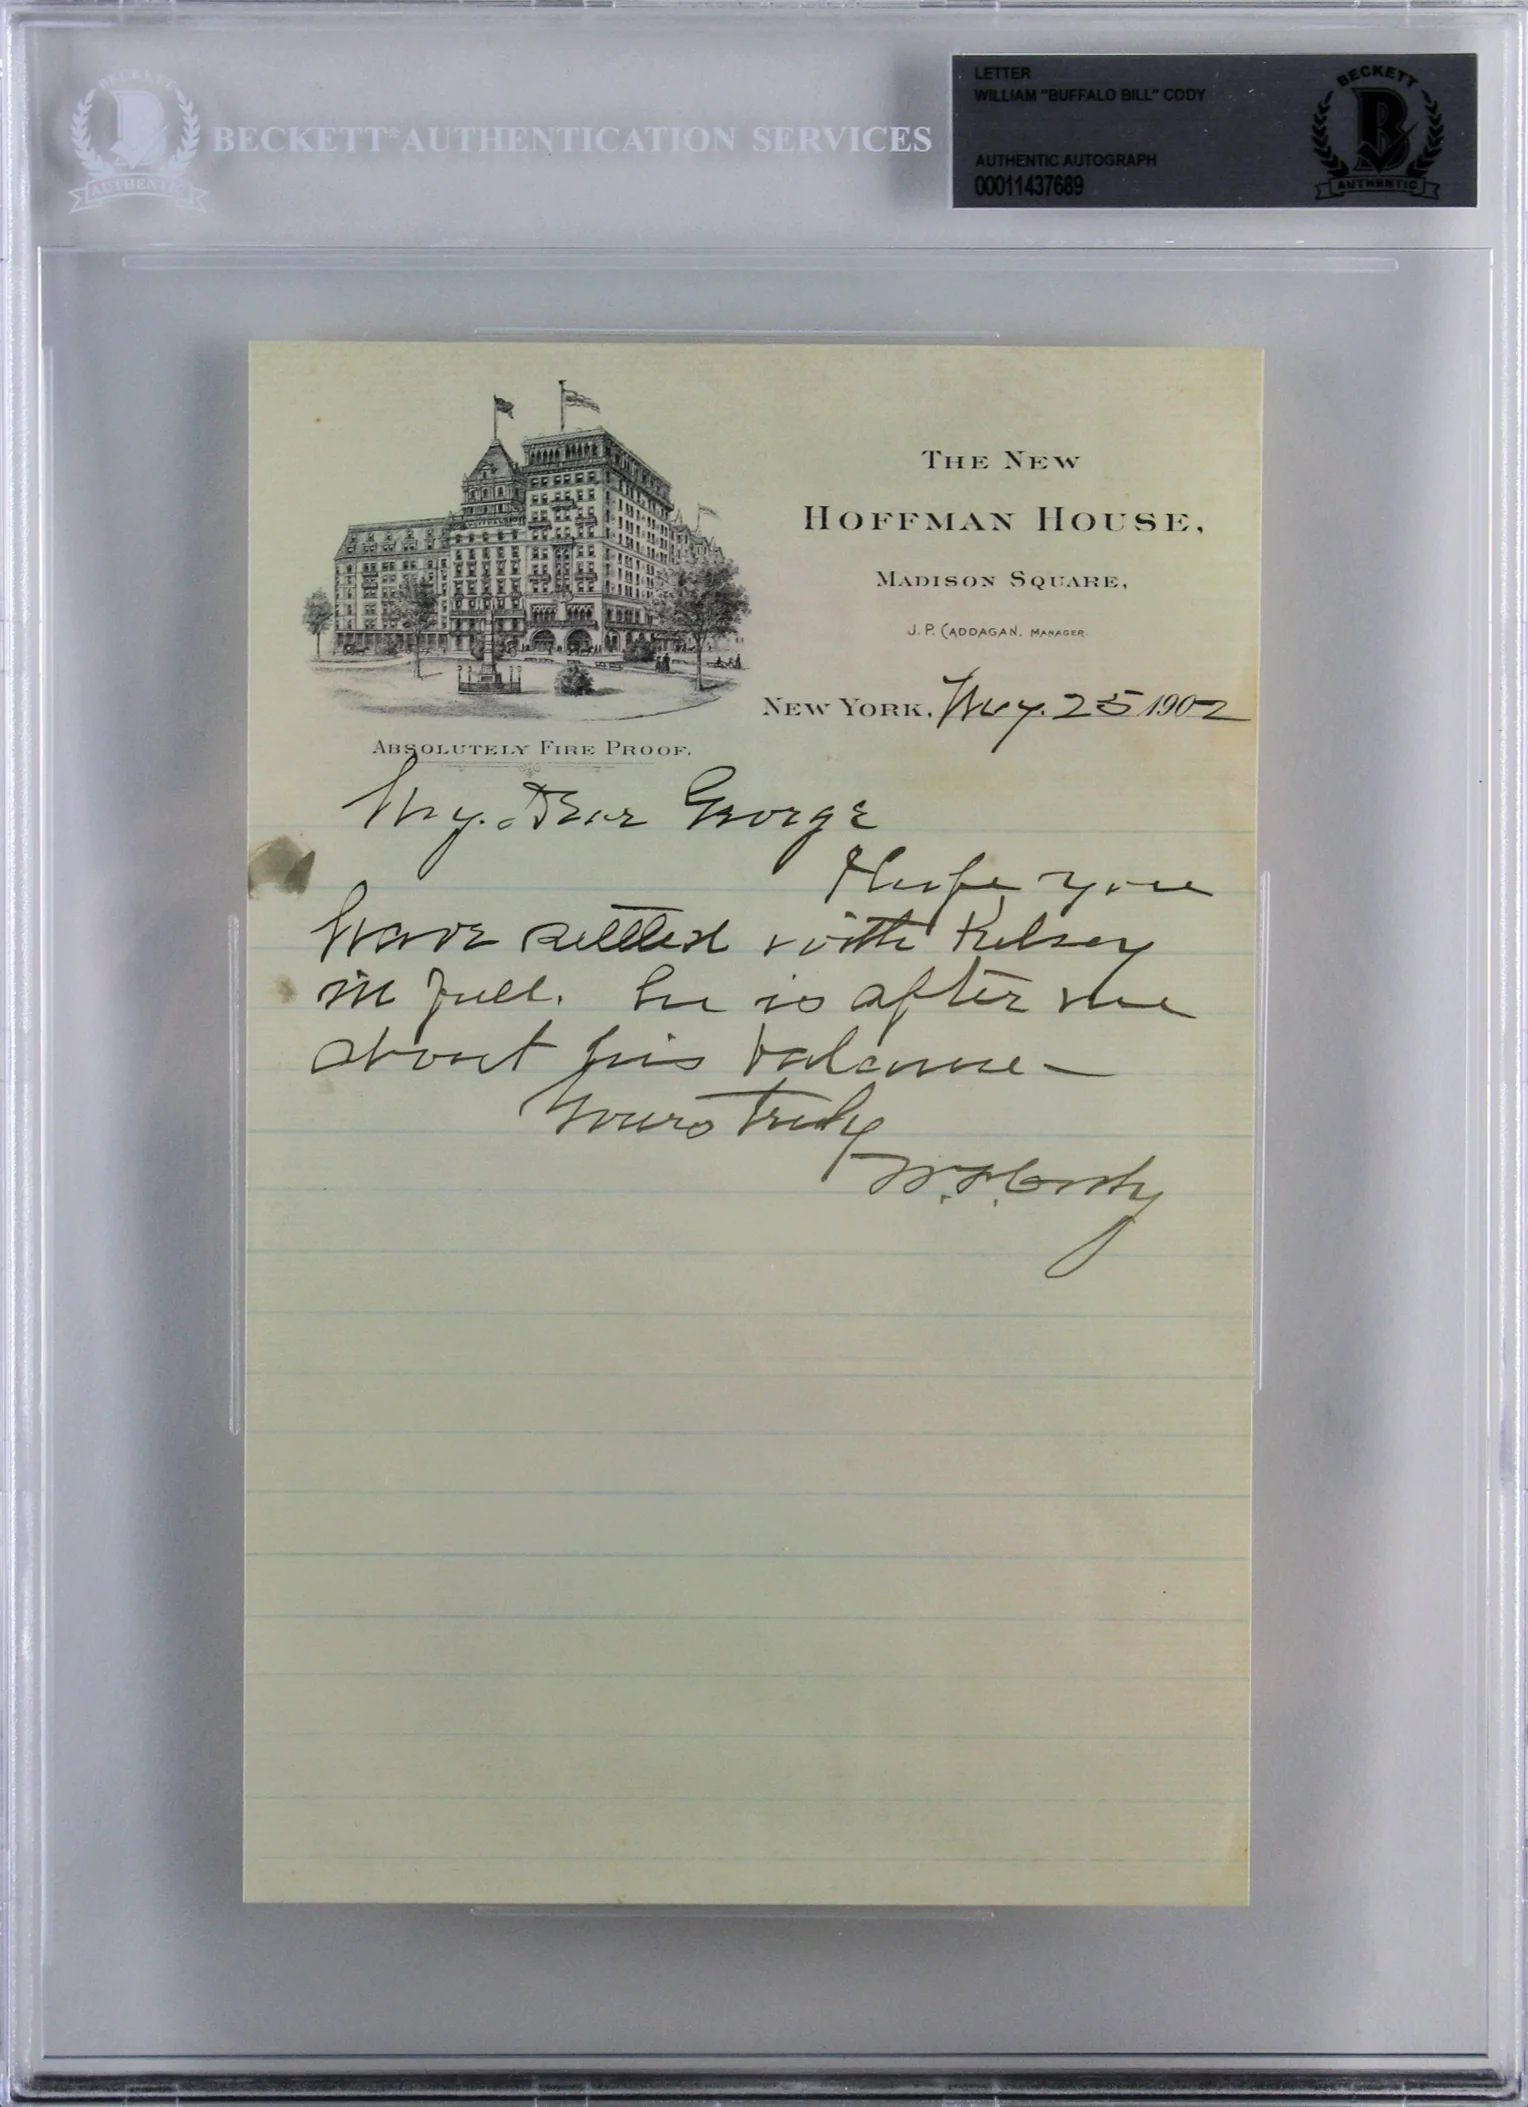 BECKETT
AUTHENTIC
BECKETT® AUTHENTICATION SERVICES
LETTER
WILLIAM "BUFFALO BILL" CODY
AUTHENTIC AUTOGRAPH
00011437689
BECKETT
B
AUTHENTIC
THE NEW
HOFFMAN HOUSE,
MADISON SQUARE,
J. P. CADDAGAN, MANAGER.
NEW YORK, May. 25 1902
ABSOLUTELY FIRE PROOF.
My. Dear George
Hope you
have settled with Kelsey
in full. he is after me
about his balance -
Yours truly
W. F. Cody